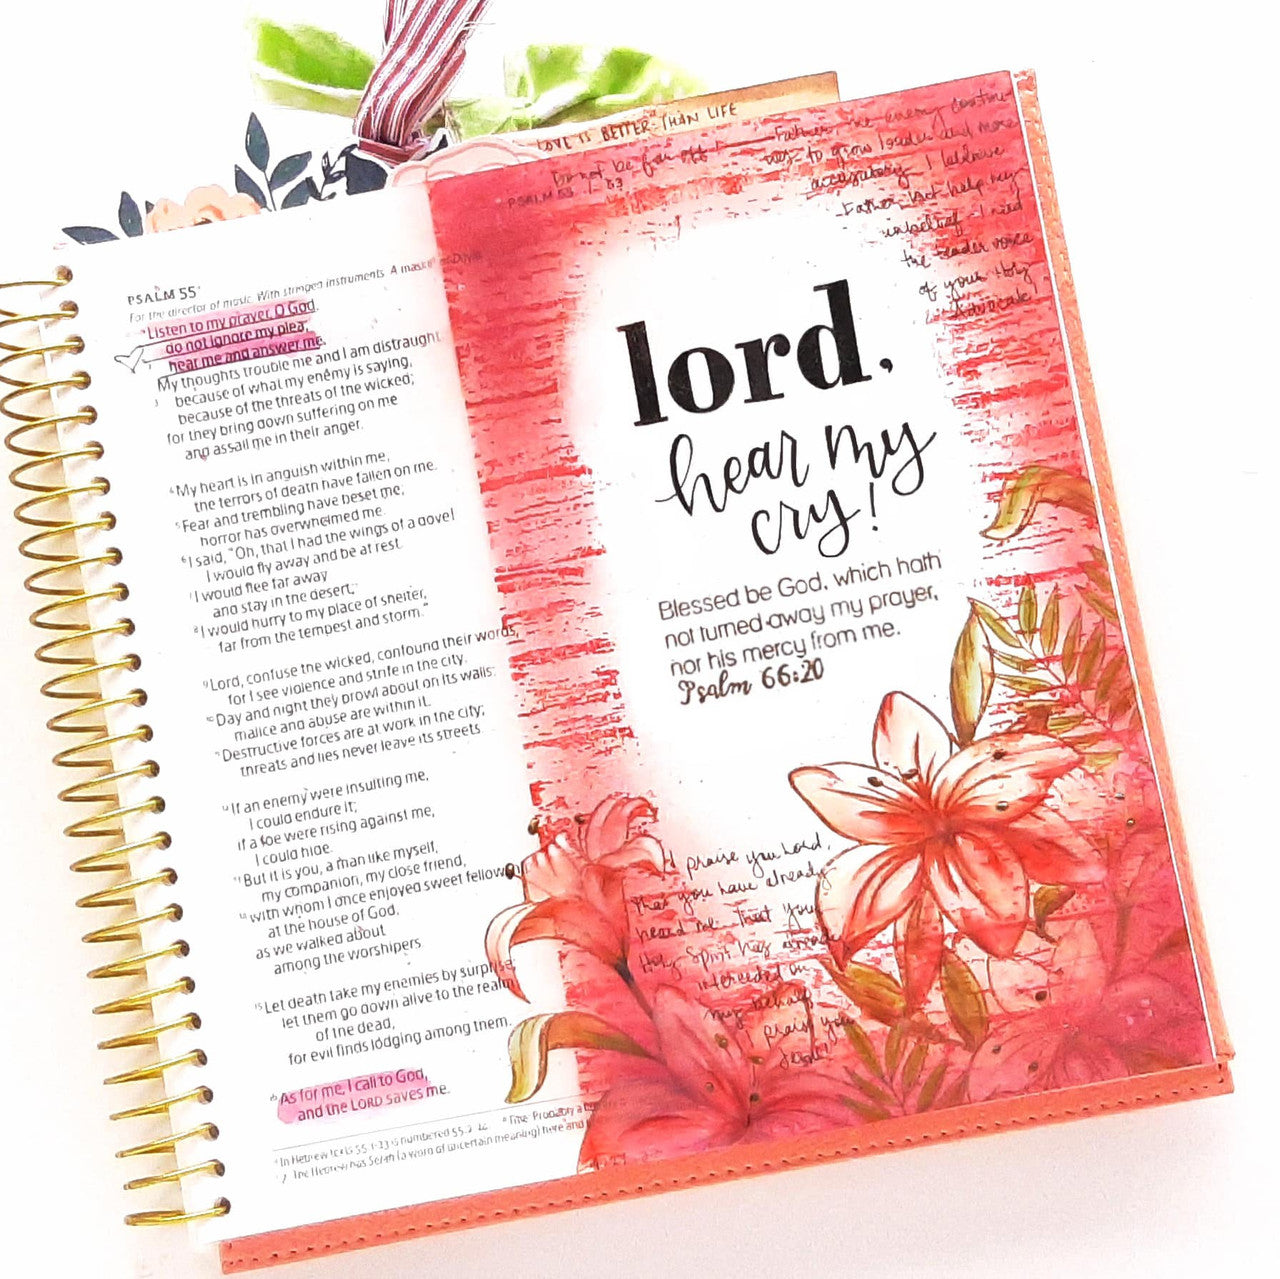 LOVE IS BETTER THAN LIFE
PSALM 55
For the director of music. With stringed instruments. A
Listen to my prayer, O God,
do not ignore my plea;
hear me and answer me.
My thoughts trouble me and I am distraught
because of what my enemy is saying,
because of the threats of the wicked;
for they bring down suffering on me
and assail me in their anger.
My heart is in anguish within me,
the terrors of death have fallen on me.
Fear and trembling have beset me;
horror has overwhelmed me.
I said, "Oh, that I had the wings of a dove!
I would fly away and be at rest.
I would flee far away
and stay in the desert;
I would hurry to my place of shelter,
far from the tempest and storm."
Lord, confuse the wicked, confound their words,
for I see violence and strife in the city.
Day and night they prowl about on its walls;
malice and abuse are within it.
Destructive forces are at work in the city;
threats and lies never leave its streets.
If an enemy were insulting me,
I could endure it;
if a foe were rising against me,
I could hide.
But it is you, a man like myself,
my companion, my close friend,
with whom I once enjoyed sweet
at the house of God,
as we walked about
among the worshipers
Let death take my enemies by surprise;
let them go down alive to the realm
of the dead,
for evil finds lodging among them.
As for me, I call to God,
and the LORD saves me.
Do not be far off
PSALM 55
Father, the enemy
to grow louder and more
accusatory. I believe
Father, but help my
unbelief. I need
the tender voice
of your Holy
Advocate.
lord,
hear my
cry!
Blessed be God, which hath
not turned away my prayer,
nor his mercy from me.
Psalm 66:20
I praise you Lord,
that you have already
heard me. That your
Holy Spirit has already
interceded on
my behalf.
I praise you